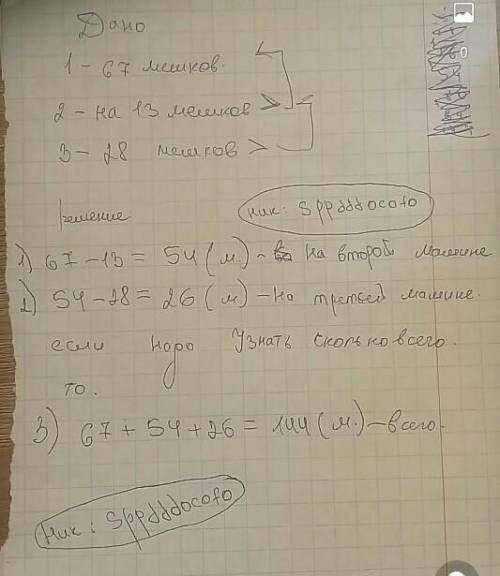 Дано
1 - 67 мешков.
2 - на 13 мешков >
3 - 28 мешков >
решение
ник: Sppdddocofo
1) 67 - 13 = 54 (м.) - на второй машине
2) 54 - 28 = 26 (м) - на третьей машине.
если надо узнать сколько всего.
то.
3) 67 + 54 + 26 = 144 (м.) - всего.
ник: Sppdddocofo